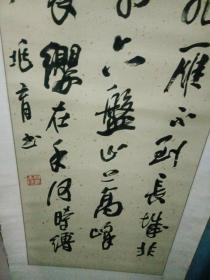 雁不到長城非
六盤山上高峰
纓在手何時縛
兆育书